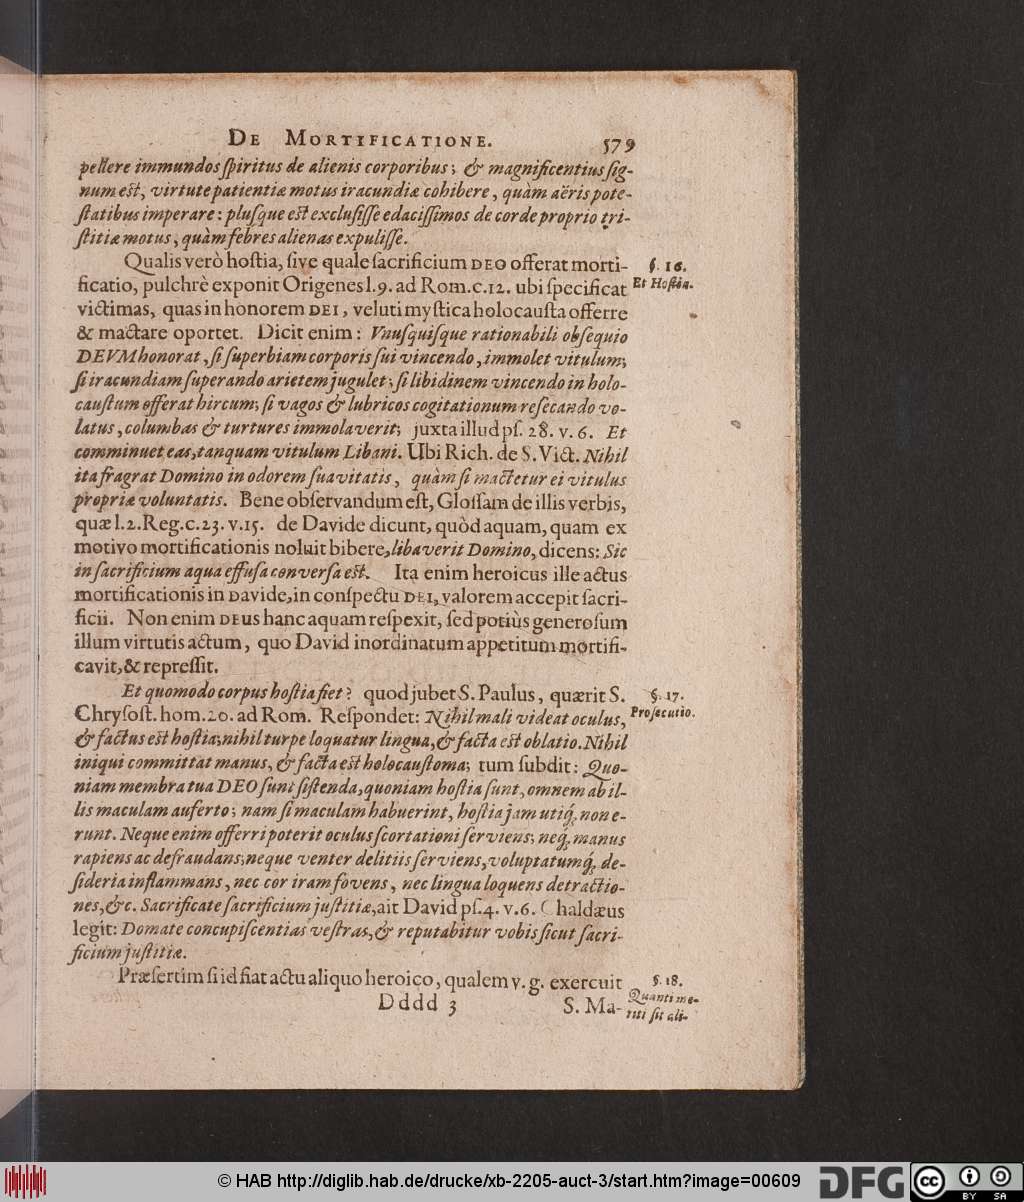 DE MORTIFICATIONE. 579
pellere immundos ſpiritus de alienis corporibus; & magnificentius ſig-
num eſt, virtute patientiæ motus iracundiæ cohibere, quàm aëris pote-
ſtatibus imperare: pluſque eſt excluſiſſe edaciſſimos de corde proprio tri-
ſtitiæ motus, quàm febres alienas expuliſſe.
Qualis verò hoſtia, ſive quale ſacrificium DEO offerat morti-
§. 16.
ficatio, pulchrè exponit Origenes l. 9. ad Rom. c. 12. ubi ſpecificat
Et Hoſtia.
victimas, quas in honorem DEI, veluti myſtica holocauſta offerre
& mactare oportet. Dicit enim: Vnuſquiſque rationabili obſequio
DEVM honorat, ſi ſuperbiam corporis ſui vincendo, immolet vitulum;
ſi iracundiam ſuperando arietem jugulet; ſi libidinem vincendo in holo-
cauſtum offerat hircum; ſi vagos & lubricos cogitationum reſecando vo-
latus, columbas & turtures immolaverit; juxta illud pſ. 28. v. 6. Et
comminuet eas, tanquam vitulum Libani. Ubi Rich. de S. Vict. Nihil
ita fragrat Domino in odorem ſuavitatis, quàm ſi mactetur ei vitulus
propriæ voluntatis. Bene obſervandum eſt, Gloſſam de illis verbis,
quæ l. 2. Reg. c. 23. v. 15. de Davide dicunt, quòd aquam, quam ex
motivo mortificationis noluit bibere, libaverit Domino, dicens: Sic
in ſacrificium aqua effuſa converſa eſt. Ita enim heroicus ille actus
mortificationis in Davide, in conſpectu DEI, valorem accepit ſacri-
ficii. Non enim DEus hanc aquam reſpexit, ſed potiùs generoſum
illum virtutis actum, quo David inordinatum appetitum mortifi-
cavit, & repreſſit.
Et quomodo corpus hoſtia fiet? quod jubet S. Paulus, quærit S.
§. 17.
Chryſoſt. hom. 20. ad Rom. Reſpondet: Nihil mali videat oculus,
Proſecutio.
& factus eſt hoſtia; nihil turpe loquatur lingua, & facta eſt oblatio. Nihil
iniqui committat manus, & facta eſt holocauſtoma; tum ſubdit: Quo-
niam membra tua DEO ſunt ſiſtenda, quoniam hoſtia ſunt, omnem ab il-
lis maculam auferto; nam ſi maculam habuerint, hoſtia jam utiq́; non e-
runt. Neque enim offerri poterit oculus ſcortationi ſerviens; neq́; manus
rapiens ac defraudans; neque venter delitiis ſerviens, voluptatumq́; de-
ſideria inflammans, nec cor iram fovens, nec lingua loquens detractio-
nes, &c. Sacrificate ſacrificium juſtitiæ, ait David pſ. 4. v. 6. Chaldæus
legit: Domate concupiſcentias veſtras, & reputabitur vobis ſicut ſacri-
ficium juſtitiæ.
Præſertim ſi id fiat actu aliquo heroico, qualem v. g. exercuit
§. 18.
Quanti me-
Dddd 3 S. Ma-
riti ſit ali-
© HAB http://diglib.hab.de/drucke/xb-2205-auct-3/start.htm?image=00609
DFG
cc
BY SA